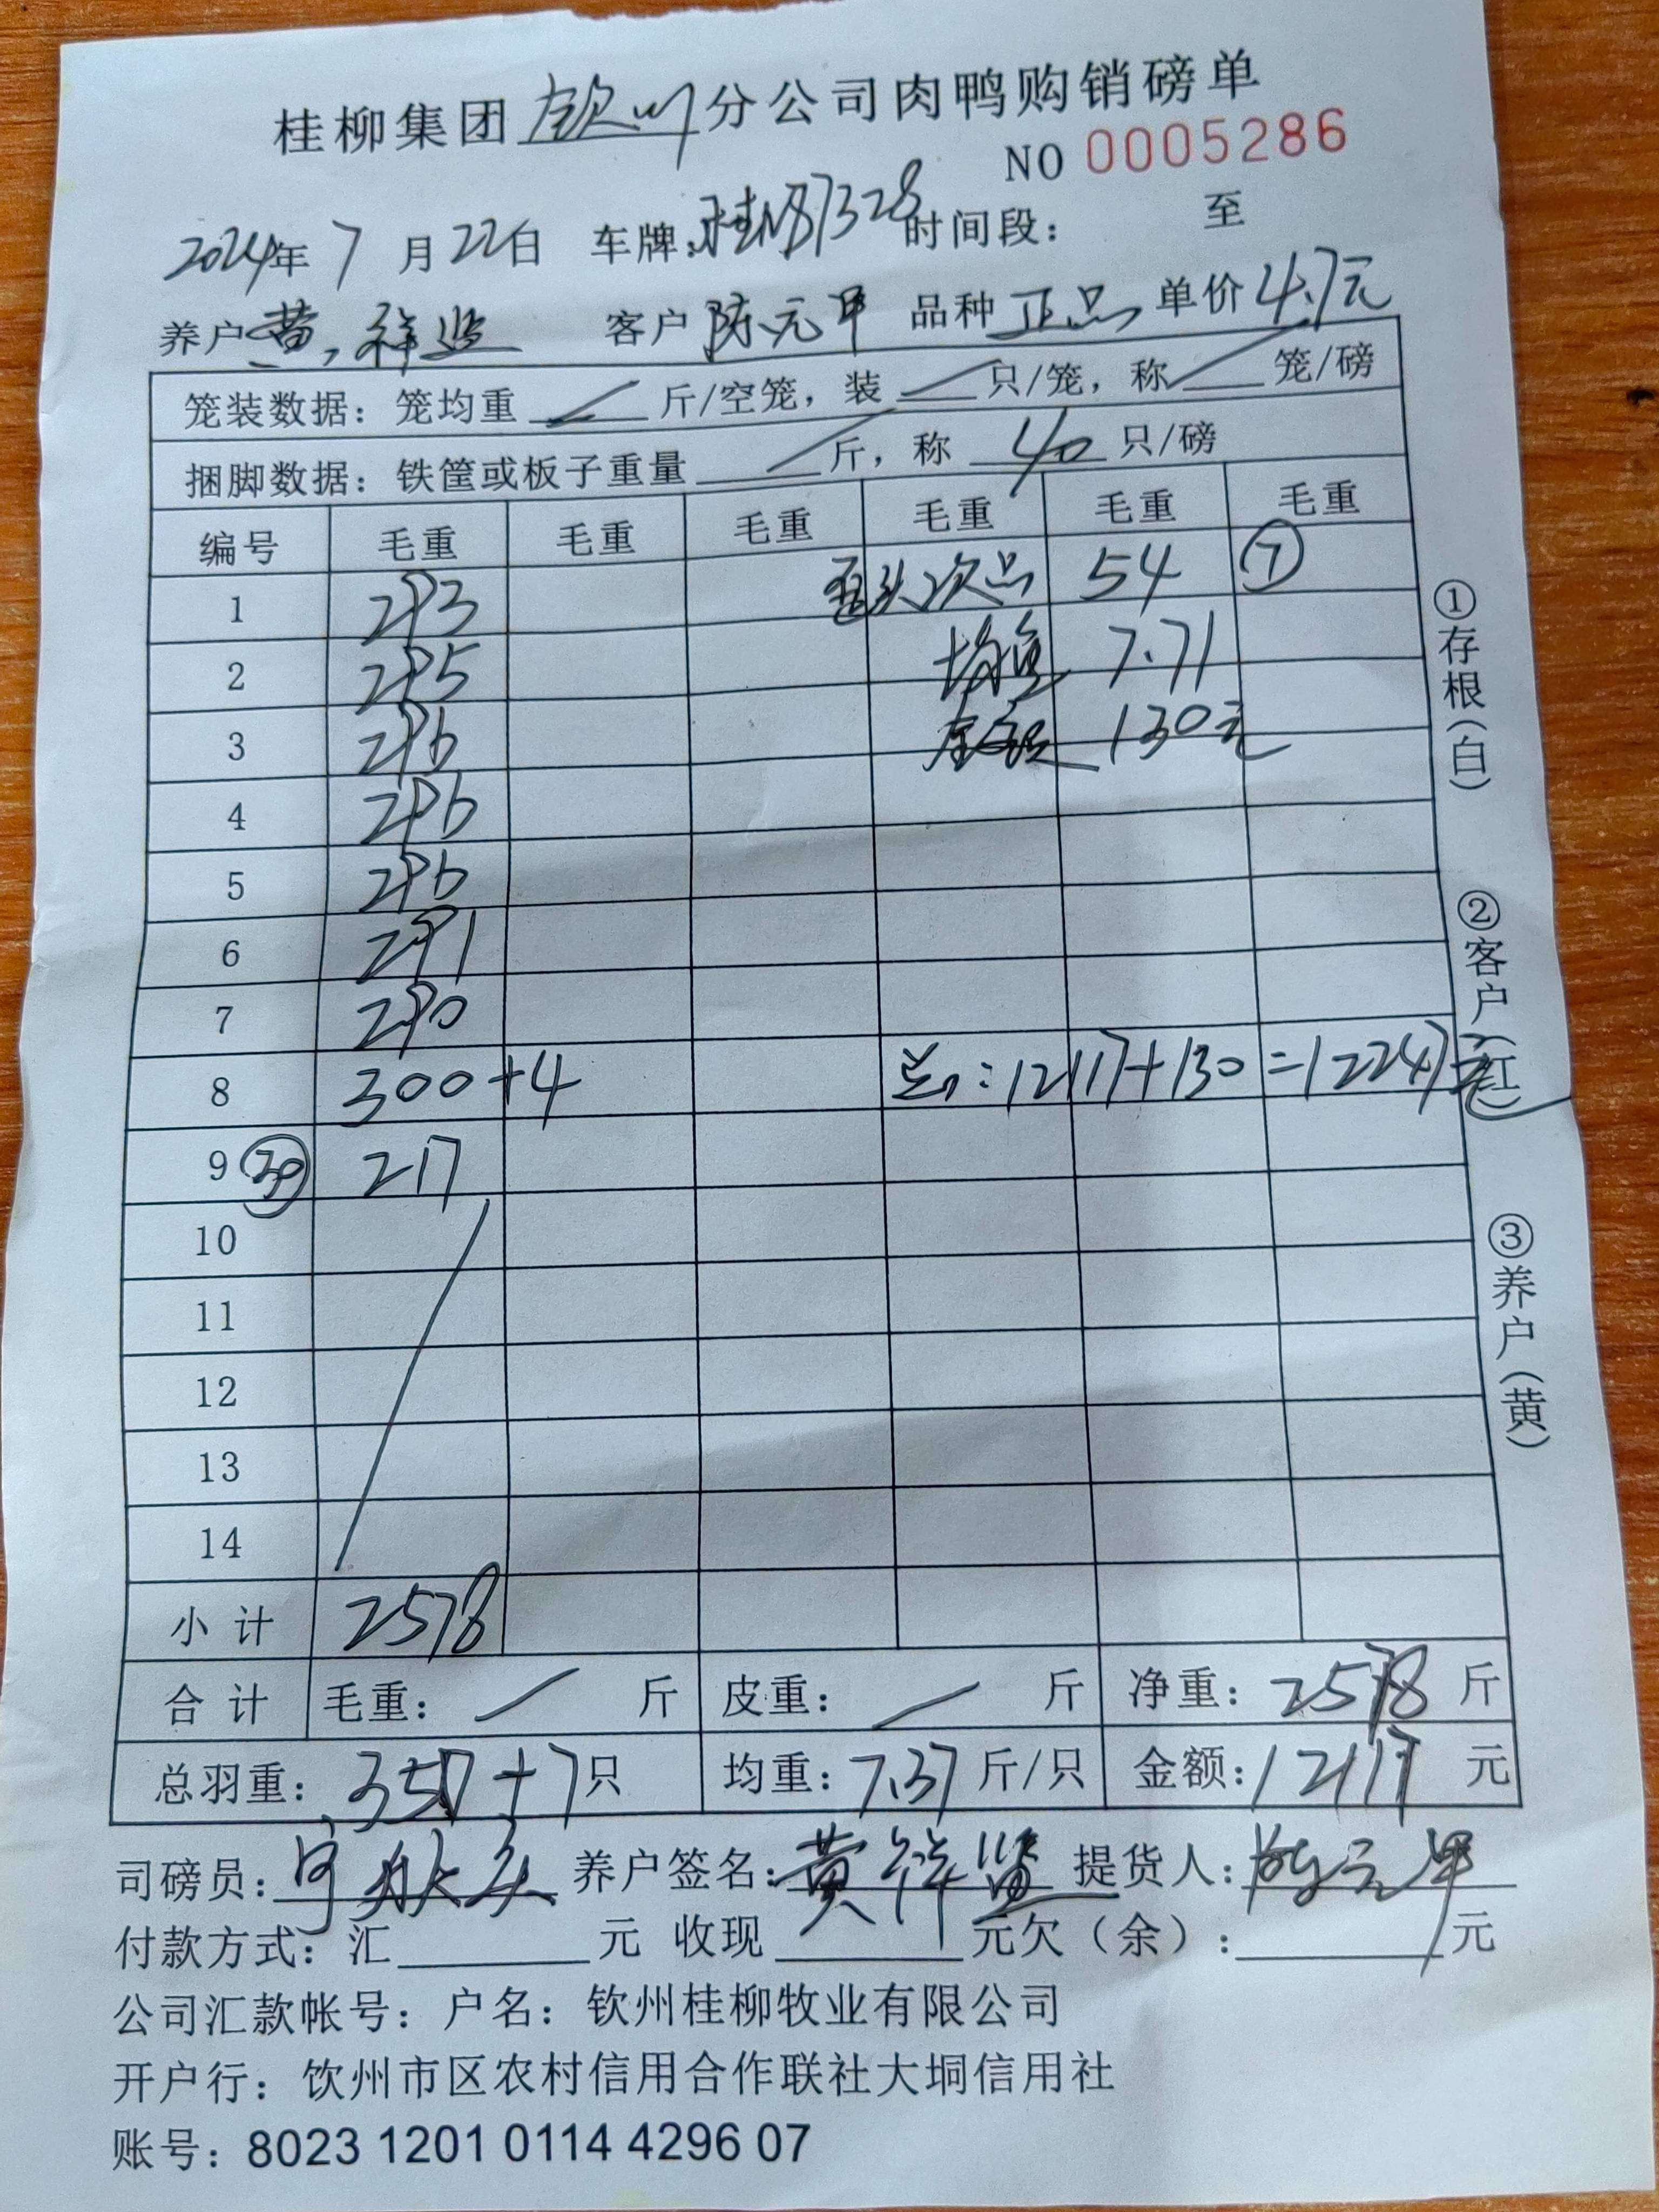 桂柳集团钦州分公司肉鸭购销磅单
NO 0005286
2024年 7 月 22日 车牌: 时间段： 至
养户 黄祥 客户 陈元甲 品种 正品 单价 4.7元
笼装数据：笼均重 / 斤/空笼，装 / 只/笼，称 / 笼/磅
捆脚数据：铁筐或板子重量 / 斤，称 40 只/磅
编号 毛重 毛重 毛重 毛重 毛重 毛重
1 293 歪头次品 54 ⑦
2 295 均重 7.71
3 296 金额 130元
4 296
5 296
6 291
7 290
8 300+4 总：12117+130=12247元
9 ㉚ 217
10
11
12
13
14
小 计 2578
合 计 毛重： / 斤 皮重： / 斤 净重：2578 斤
总羽重： 350+7只 均重：7.37 斤/只 金额：12117 元
司磅员： 养户签名：黄祥 提货人：陈元甲
付款方式：汇 元 收现 元欠（余）： 元
公司汇款帐号：户名：钦州桂柳牧业有限公司
开户行：钦州市区农村信用合作联社大垌信用社
账号：8023 1201 0114 4296 07
①存根（白）
②客户（红）
③养户（黄）